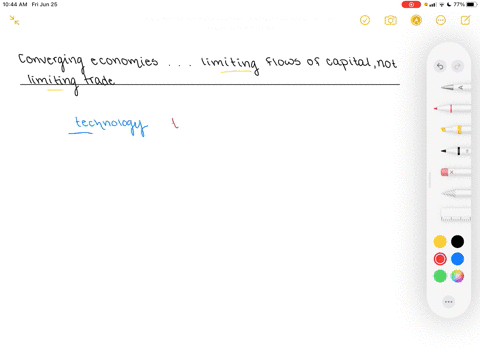 10:44 AM Fri Jun 25
77%
Converging economies ... limiting flows of capital, not
limiting trade
technology